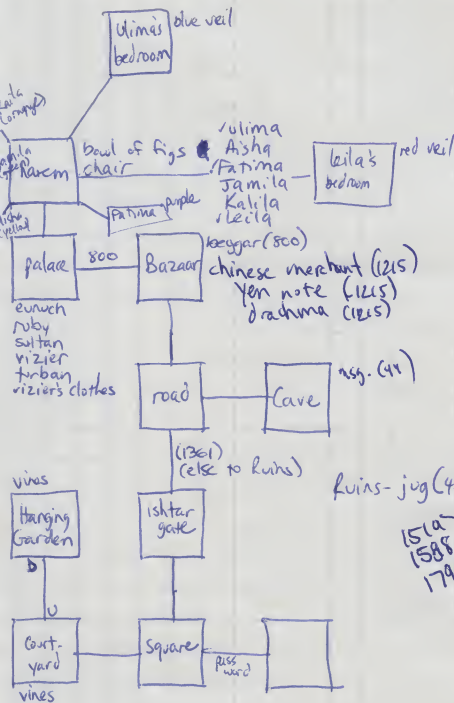 Ulima's
bedroom
blue veil
harem
bowl of figs
chair
✓Ulima
Aisha
✓Fatima
Jamila
Kalila
✓Leila
Leila's
bedroom
red veil
Fatima
purple
palace
800
Bazaar
beggar (800)
chinese merchant (1215)
yen note (1215)
drachma (1215)
eunuch
ruby
sultan
vizier
turban
vizier's clothes
road
Cave
msg. (44)
(1361)
(else to Ruins)
Ruins - jug (4
vines
Hanging
Garden
D
ishtar
gate
U
Court-
yard
square
pass
word
vines